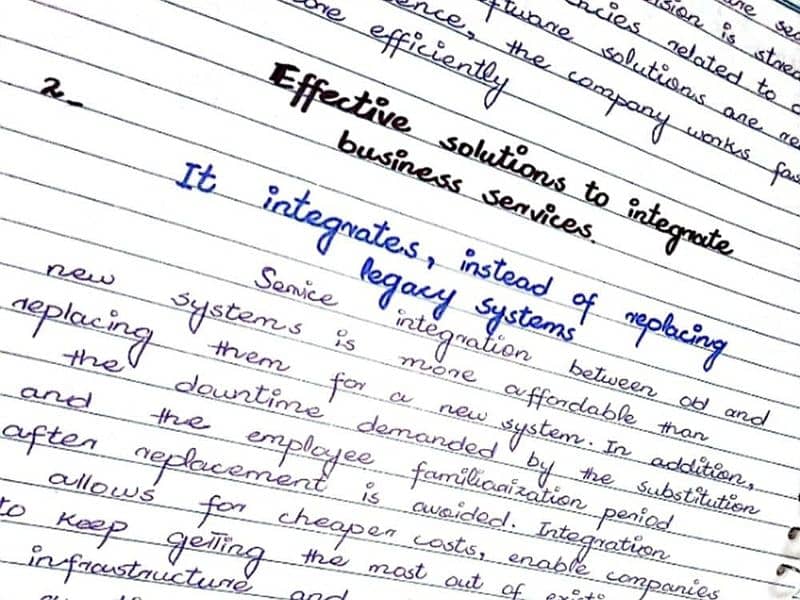 sion is stored
ncies related to
ftware solutions are
ence, the company works
efficiently
2-
Effective solutions to integrate
business services.
It integrates, instead of replacing
legacy systems
Service integration between old and
new systems is more affordable than
replacing them for a new system. In addition,
the downtime demanded by the substitution
and the employee familiarization period
after replacement is avoided. Integration
allows for cheaper costs, enable companies
to keep getting the most out of
infraustructure and